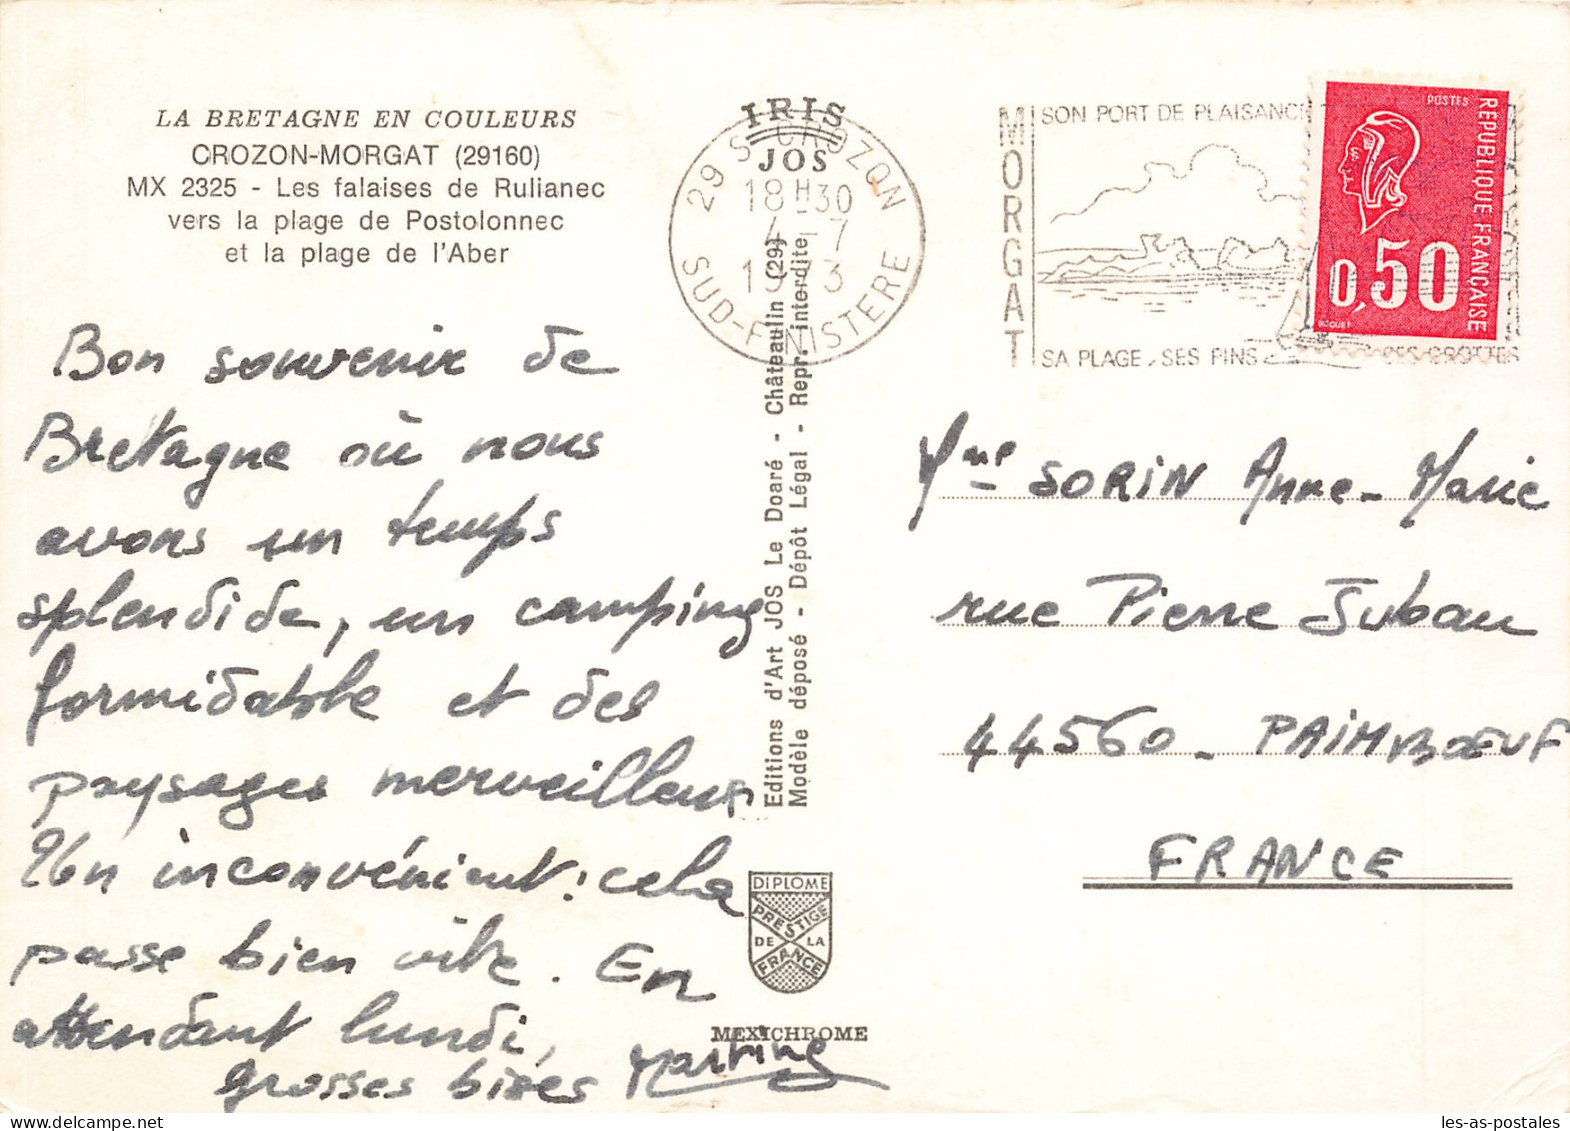 LA BRETAGNE EN COULEURS
CROZON-MORGAT (29160)
MX 2325 - Les falaises de Rulianec
vers la plage de Postolonnec
et la plage de l'Aber
Bon souvenir de
Bretagne où nous
avons un temps
splendide, un camping
formidable et des
paysages merveilleux
Un inconvénient : cela
passe bien vite. En
attendant lundi,
grosses bises Martine
IRIS
JOS
29 S CROZON
18H30
4-7
1973
SUD-FINISTERE
Editions d'Art JOS Le Doaré - Châteaulin (29)
Modèle déposé - Dépôt Légal - Repr. interdite
DIPLOME
PRESTIGE
DE LA
FRANCE
MEXICHROME
MORGAT
SON PORT DE PLAISANCE
SA PLAGE, SES PINS
SES GROTTES
POSTES
REPUBLIQUE FRANCAISE
0,50
BEQUET
Mme SORIN Anne-Marie
rue Pierre Jubau
44560 - PAIMBOEUF
FRANCE
les-as-postales